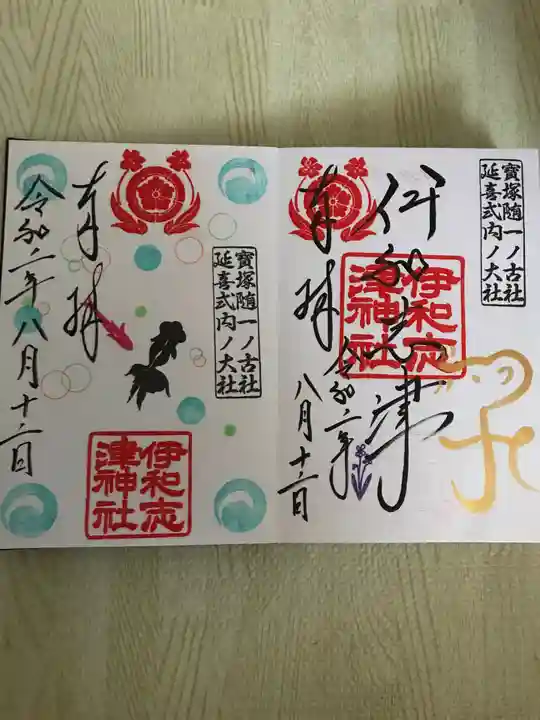 寶塚隨一ノ古社
延喜式内ノ大社
伊和志津
伊和志
津神社
奉拝
令和二年
八月十二日
寶塚隨一ノ古社
延喜式内ノ大社
奉拝
令和二年八月十二日
伊和志
津神社